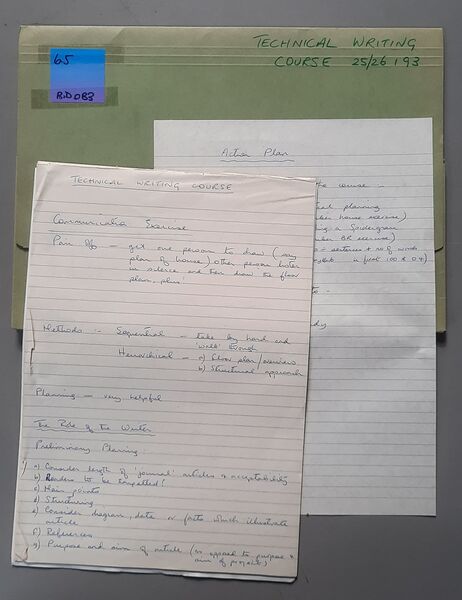 TECHNICAL WRITING
COURSE 25/26 1 93
65
RiD 083
Action Plan
the course :-
planning
house exercise)
a Spidergram
BR exercise)
sentences + no of words
in first 100 & 0.4)
TECHNICAL WRITING COURSE
Communication Exercise
Pair Off - get one person to draw (say
plan of house) other person listen
in silence and then draw the floor
plan, plus!
Methods :- Sequential - take by hand and
'walk' through
Hierarchical - a) floor plan/overview
b) Structured approach
Planning - very helpful
The Role of the Writer
Preliminary Planning:
a) Consider length of 'journal' articles & acceptability
b) Readers to be targetted!
c) Main points
d) Structuring
e) Consider diagram, data or facts which illustrate
article
f) References
g) Purpose and aim of article (as opposed to purpose &
aim of project)